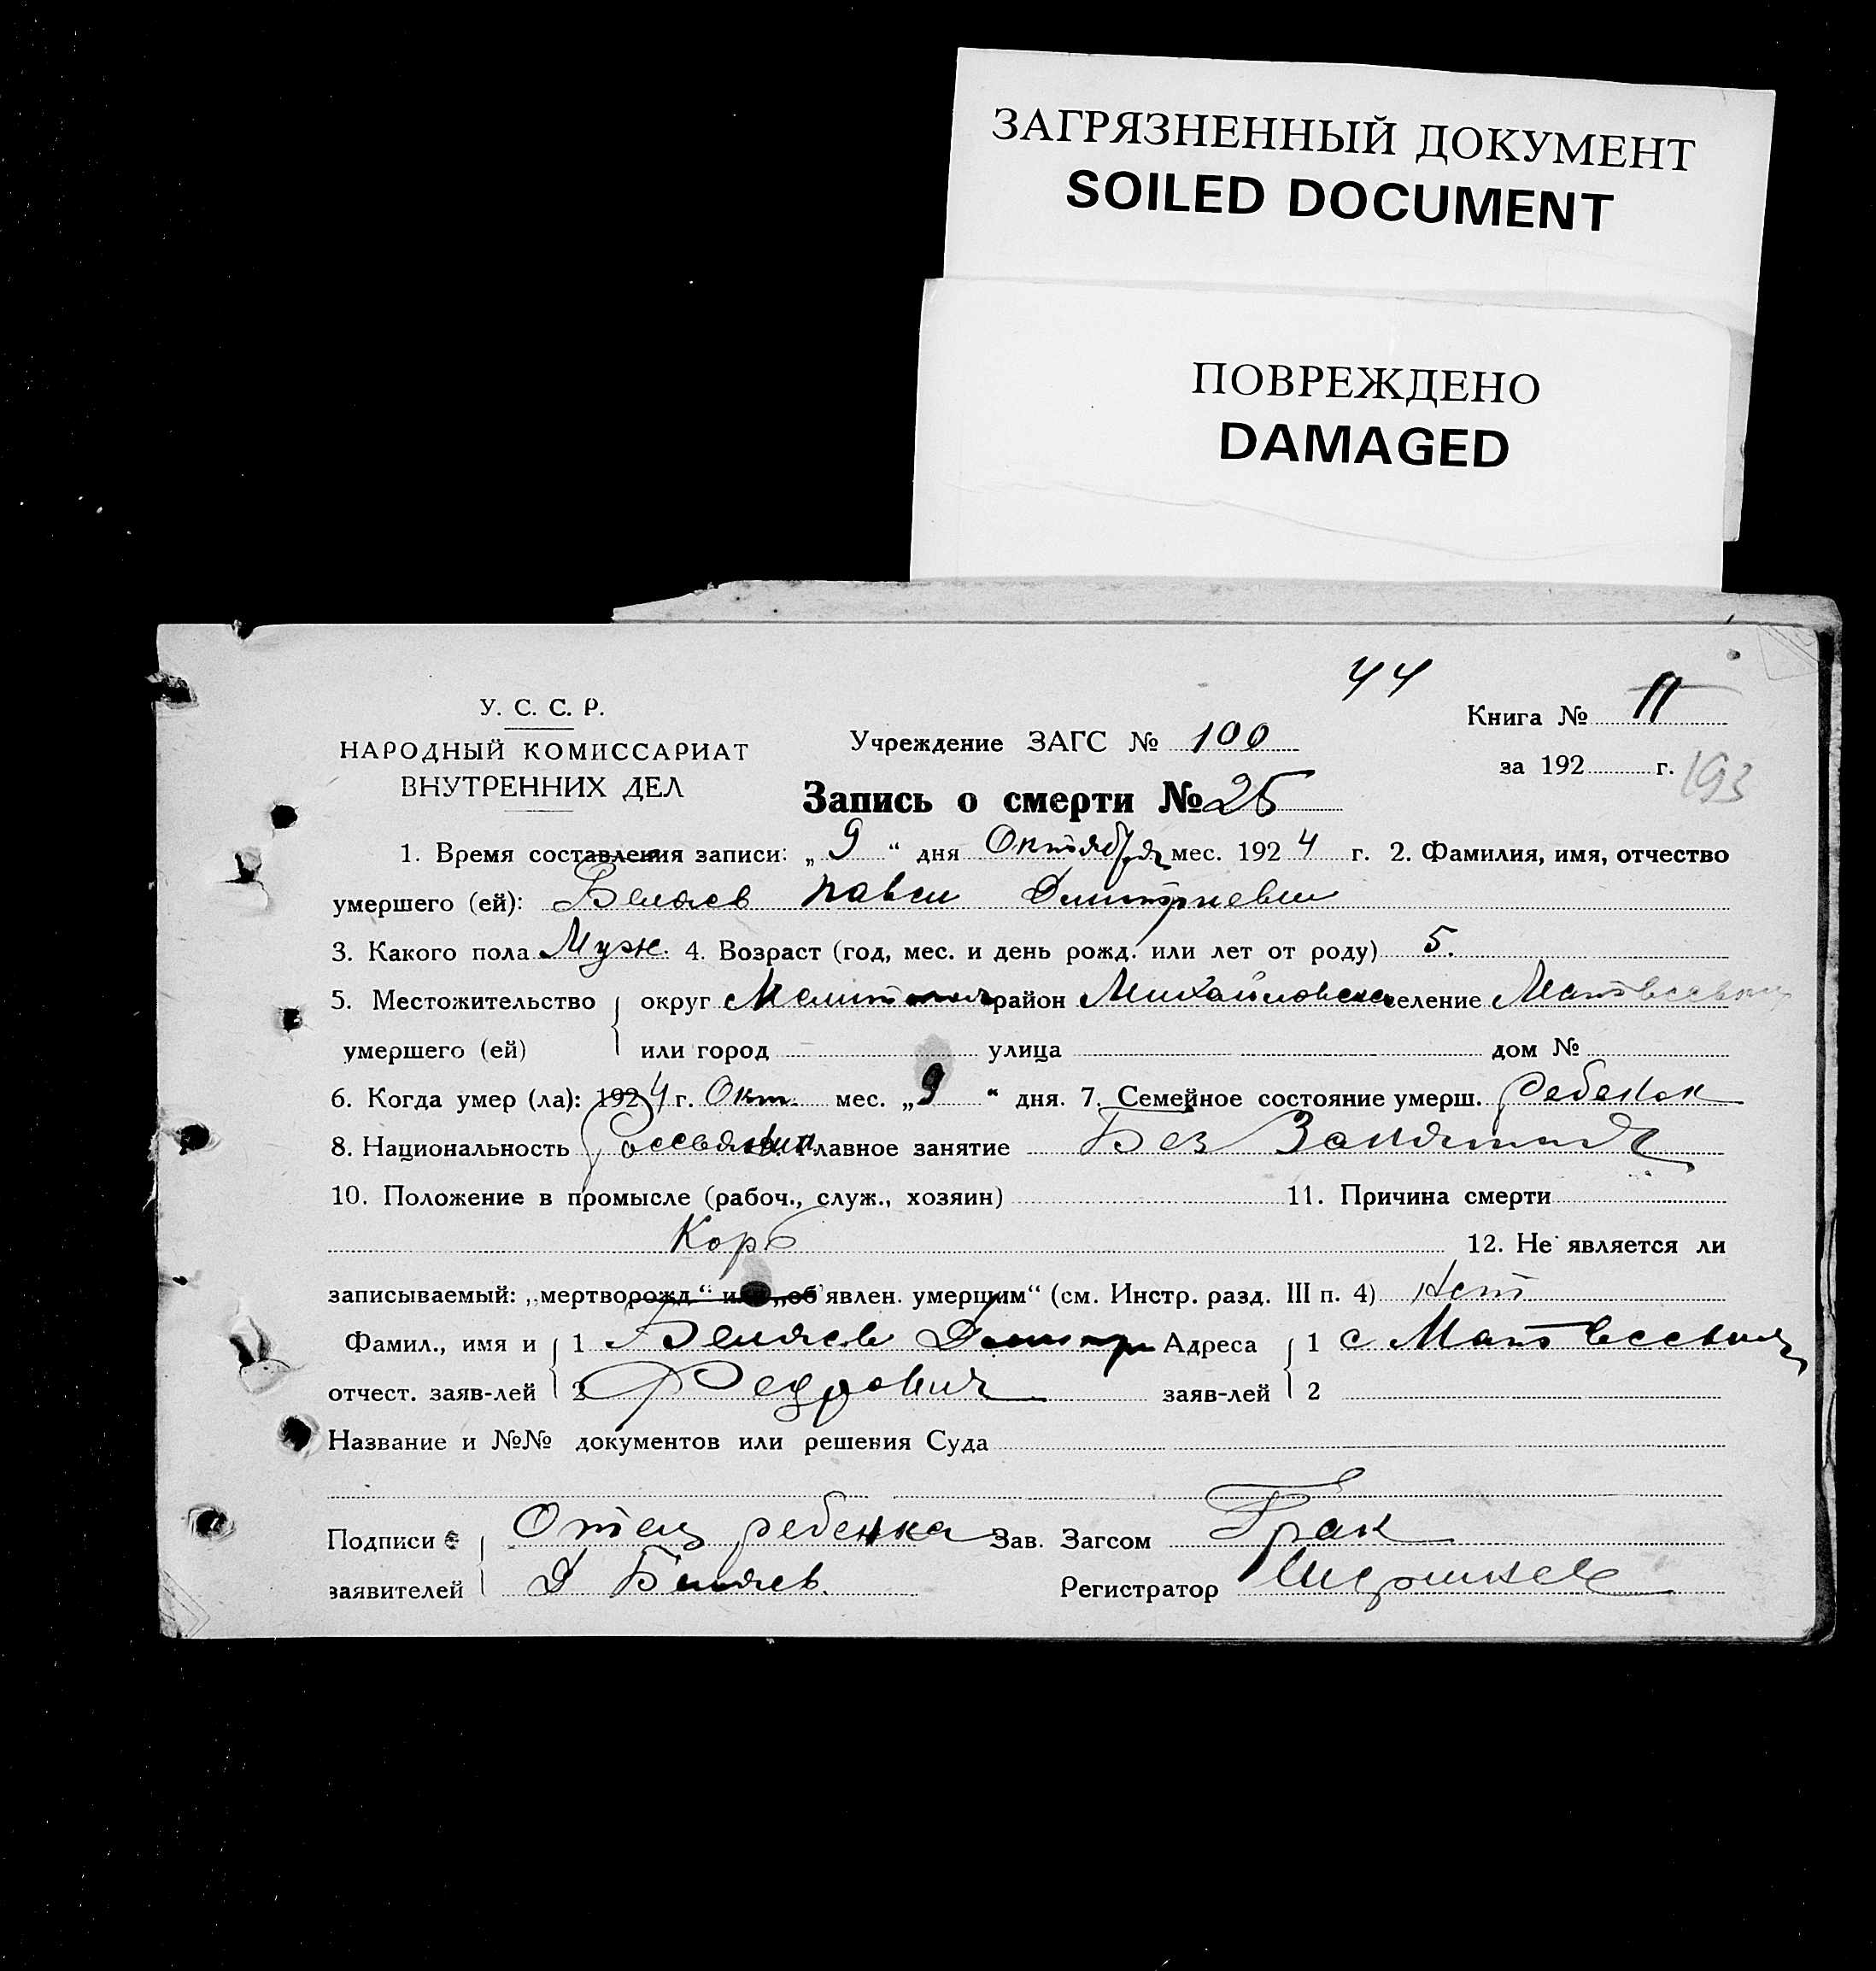 ЗАГРЯЗНЕННЫЙ ДОКУМЕНТ
SOILED DOCUMENT
ПОВРЕЖДЕНО
DAMAGED
44
У. С. С. Р.
НАРОДНЫЙ КОМИССАРИАТ
ВНУТРЕННИХ ДЕЛ
Учреждение ЗАГС № 100
Книга № II
за 192 г. 193
Запись о смерти № 25
1. Время составления записи: „ 9 “ дня Октября мес. 1924 г. 2. Фамилия, имя, отчество
умершего (ей): Беляев Павел Дмитриевич
3. Какого пола Муж. 4. Возраст (год, мес. и день рожд. или лет от роду) 5.
5. Местожительство округ район Михайловск селение
умершего (ей) или город улица дом №
6. Когда умер (ла): 1924 г. Окт. мес. „ 9 “ дня. 7. Семейное состояние умерш. Ребенок
8. Национальность главное занятие Без Занятия
10. Положение в промысле (рабоч., служ., хозяин) 11. Причина смерти
Корь 12. Не является ли
записываемый: „мертворожд.“ и „об'явлен. умершим“ (см. Инстр. разд. III п. 4) Нет
Фамил., имя и 1 Беляев Дмитр Адреса 1 с
отчест. заяв-лей 2 Федрович заяв-лей 2
Название и №№ документов или решения Суда
Подписи Отец ребенка Зав. Загсом
заявителей Д Беляев. Регистратор